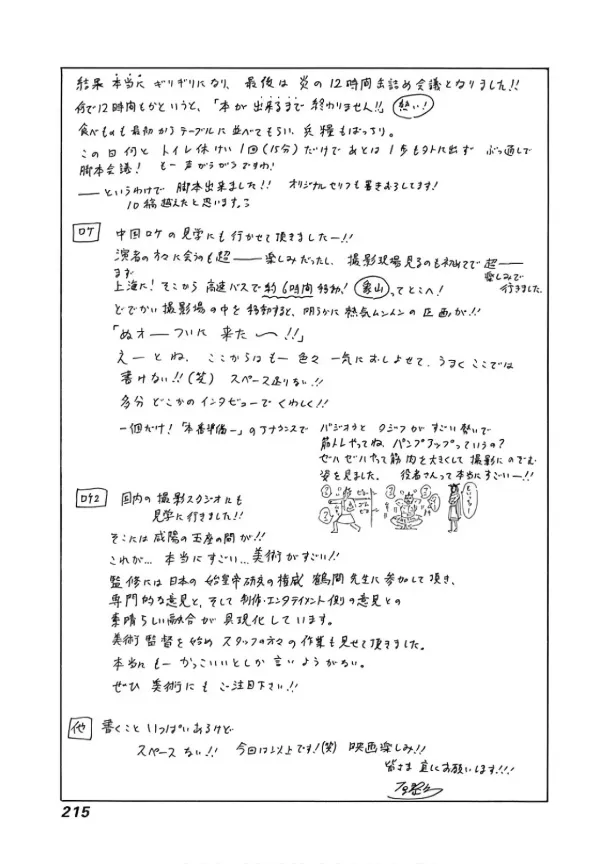 結果 本当に ギリギリになり、最後は 炎の12時間缶詰め会議となりました!!
何で12時間もかというと、「本が出来るまで終わりません!!」 熱い!
食べものも最初からテーブルに並べてもらい、兵糧もばっちり。
この日何と トイレ休けい1回(15分)だけで あとは1歩も外に出ず ぶっ通しで
脚本会議! もー声がらがらですわ!
――というわけで 脚本出来ました!! オリジナルセリフも書きおろしてます!
10稿越えたと思います。
ロケ 中国ロケの見学にも行かせて頂きましたー!!
演者の方々に会うのも超――楽しみだったし、撮影現場見るのも初めてで超――
楽しみで
行きました。
まず
上海に! そこから高速バスで約6時間移動! 象山 ってとこへ!
どでかい撮影場の中を移動すると、明らかに熱気ムンムンの区画が!!
「ぬオーついに 来た〜!!」
えーとね、ここからはもー色々一気におしよせて、うまくここでは
書けない!!(笑) スペース足りない!!
多分どこかのインタビューでくわしく!!
一個だけ!「本番準備ー」のアナウンスで バジオウと タジフが すごい勢いで
筋トレやってね、パンプアップっていうの?
ゼハゼハやって筋肉を大きくして撮影にのぞむ
姿を見ました。 役者さんって本当にすごいー!!
ロケ2 国内の撮影スタジオにも
見学に行きました!!
そこには咸陽の玉座の間が!!
これが… 本当にすごい… 美術がすごい!!
監修には日本の始皇帝研究の権威 鶴間先生に参加して頂き、
専門的な意見と、そして制作・エンタテイメント側の意見との
素晴らしい融合が具現化しています。
美術監督を始め スタッフの方々の作業も見せて頂きました。
本当にもーかっこいいとしか言いようがない。
ぜひ 美術にも ご注目下さい!!
他 書くこといっぱいあるけど
スペースない!! 今回は以上です!(笑) 映画楽しみ!!
皆さま 宜しくお願いします!!!
原泰久
215